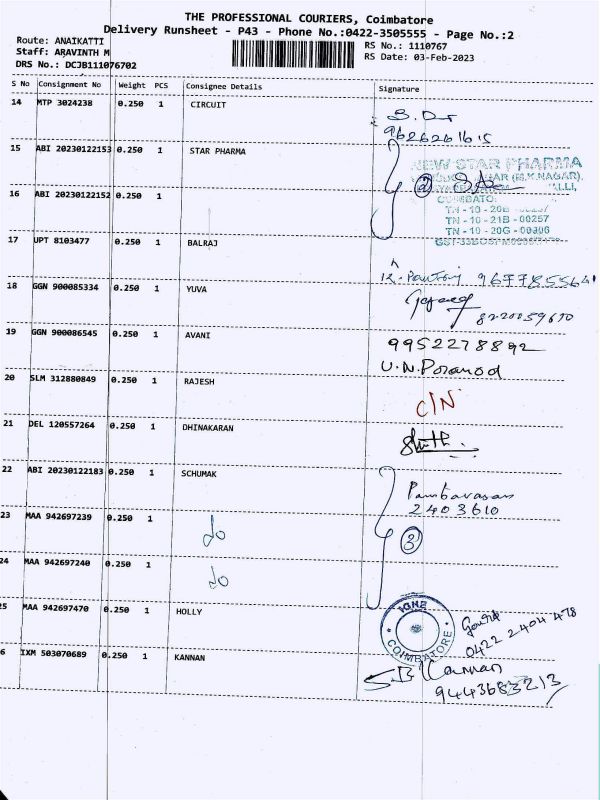 THE PROFESSIONAL COURIERS, Coimbatore
Delivery Runsheet - P43 - Phone No.:0422-3505555 - Page No.:2
Route: ANAIKATTI
Staff: ARAVINTH M
DRS No.: DCJB111076702
RS No.: 1110767
RS Date: 03-Feb-2023
S No Consignment No Weight PCS Consignee Details Signature
14 MTP 3024238 0.250 1 CIRCUIT
9626261615
15 ABI 20230122153 0.250 1 STAR PHARMA
NEW STAR PHARMA
(M.K.NAGAR),
16 ABI 20230122152 0.250 1
②
TN - 10 - 20B
TN - 10 - 21B - 00257
TN - 10 - 20G - 00306
17 UPT 8103477 0.250 1 BALRAJ
9677855641
18 GGN 900085334 0.250 1 YUVA
8220059670
19 GGN 900086545 0.250 1 AVANI
9952278892
20 SLM 312880849 0.250 1 RAJESH
C/N
21 DEL 120557264 0.250 1 DHINAKARAN
22 ABI 20230122183 0.250 1 SCHUMAK
Pambavasan
2403610
23 MAA 942697239 0.250 1 do
③
24 MAA 942697240 0.250 1 do
25 MAA 942697470 0.250 1 HOLLY
COIMBATORE
0422 2404 478
6 IXM 503070689 0.250 1 KANNAN
S.B. Kannan
9443683213